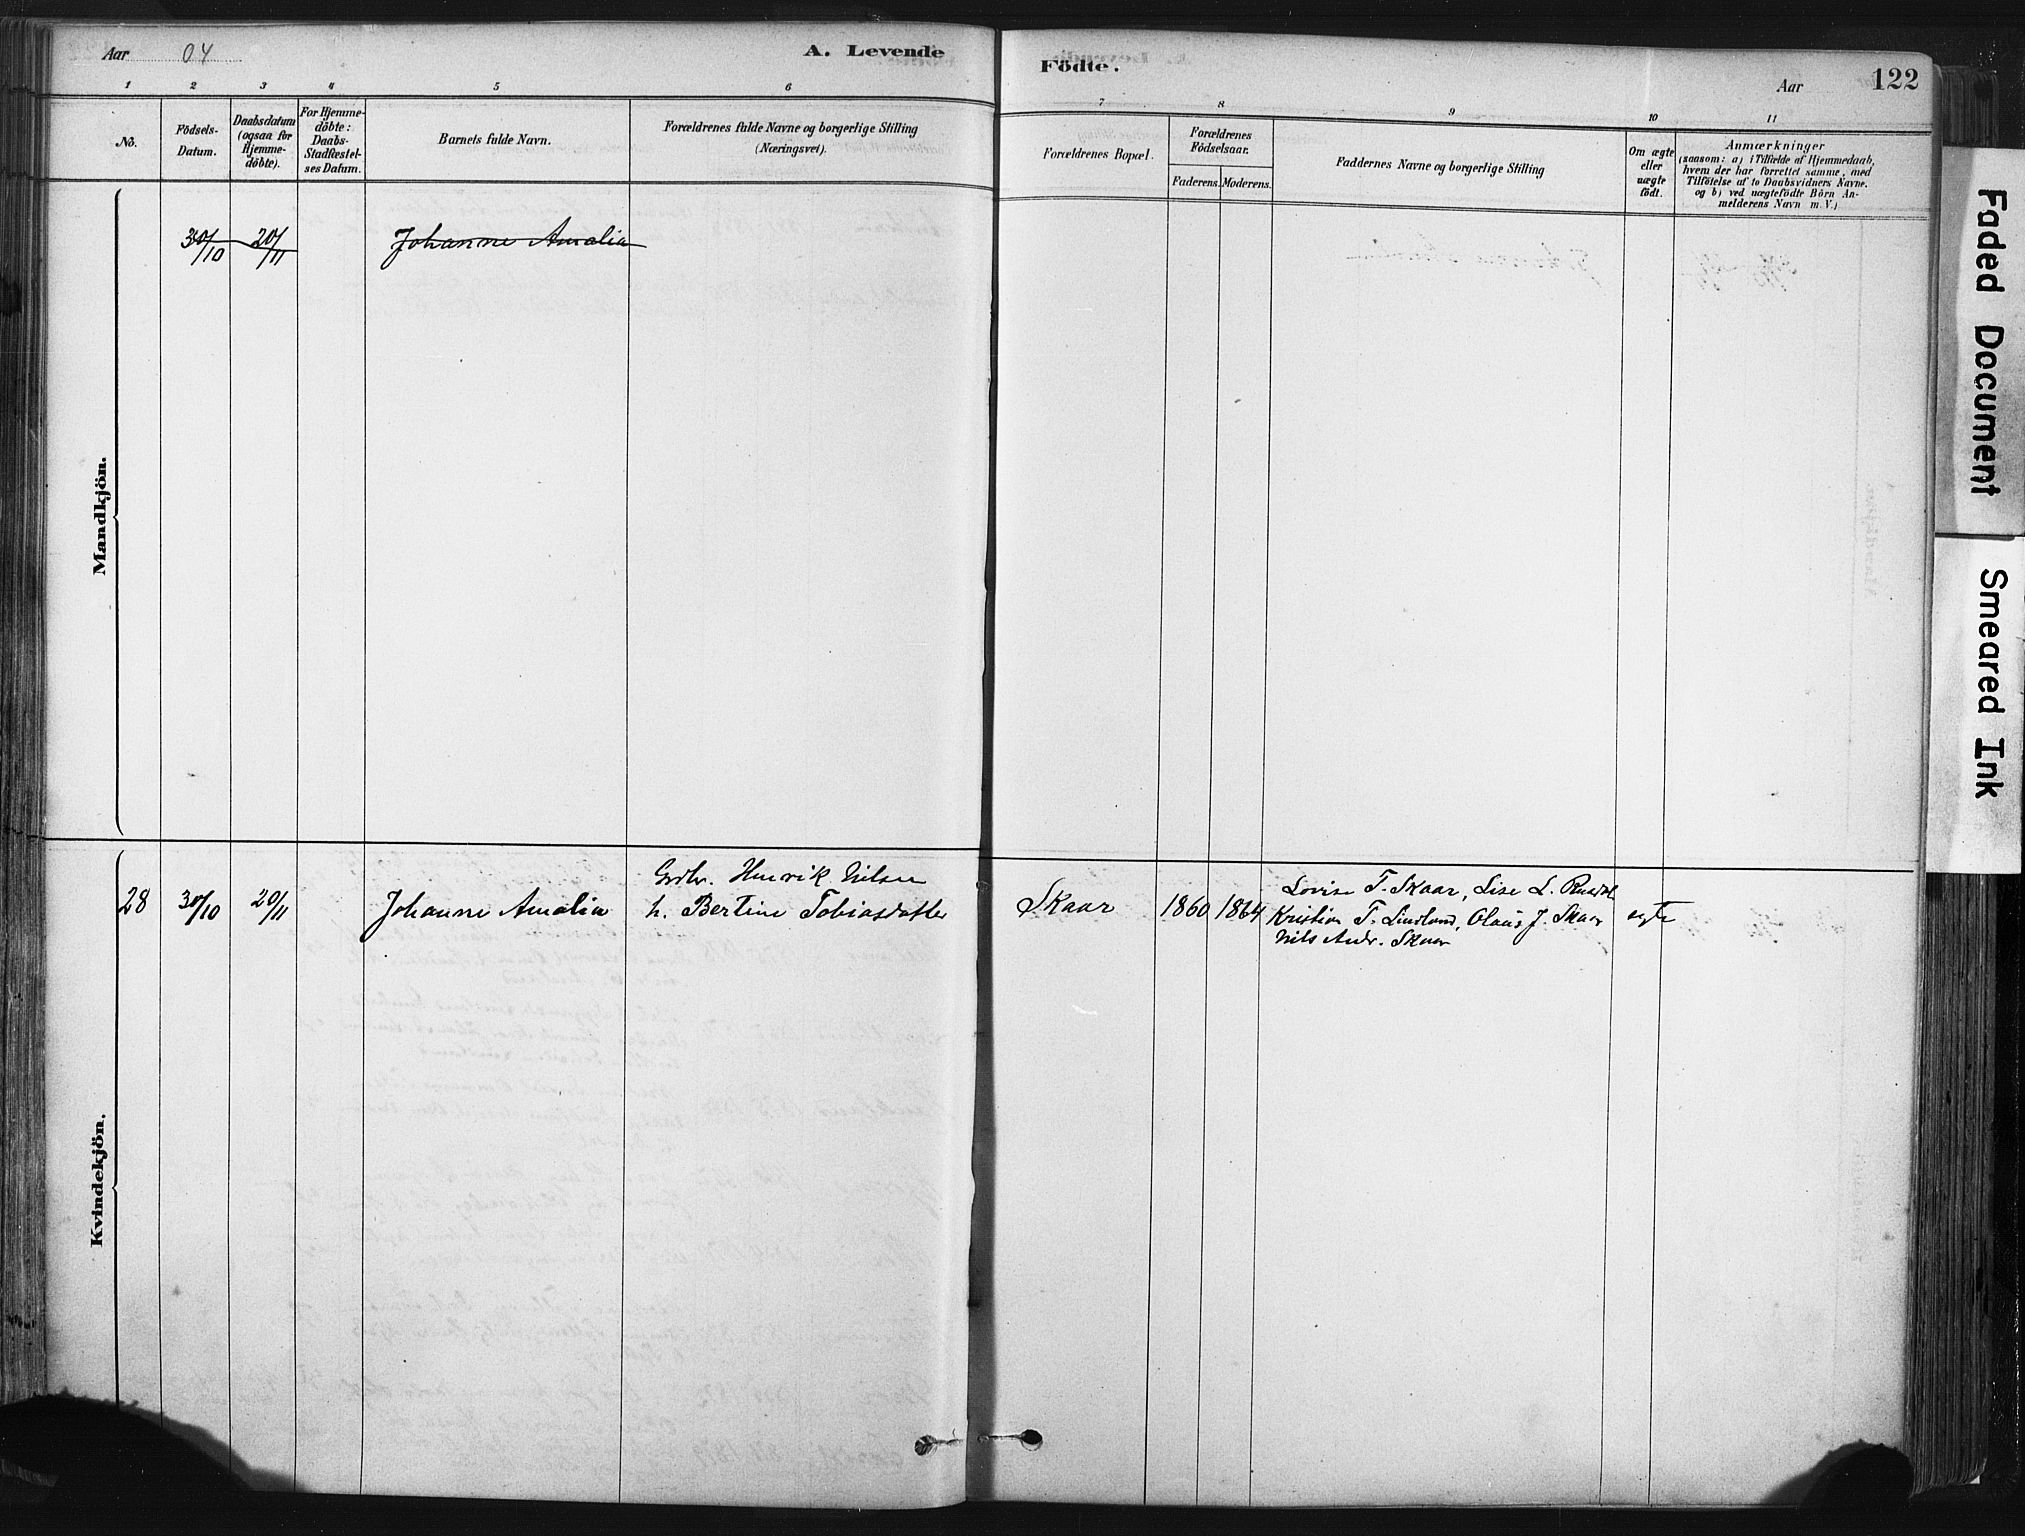 Aar 04
A. Levende
Födte.
Aar
122
1
2
3
4
5
6
7
8
9
10
11
No.
Födsels-
Datum.
Daabsdatum
(ogsaa for
Hjemme-
döbte).
For Hjemme-
döbte:
Daabs-
Stadfæstel-
ses Datum.
Barnets fulde Navn.
Forældrenes fulde Navne og borgerlige Stilling
(Næringsvei).
Forældrenes Bopæl.
Forældrenes
Födselsaar.
Faderens.
Moderens.
Faddernes Navne og borgerlige Stilling
Om ægte
eller
uægte
födt.
Anmærkninger
(saasom: a) i Tilfælde af Hjemmedaab,
hvem der har forrettet samme, med
Tilföielse af to Daabsvidners Navne.
og b) ved uægtefödte Börn An-
melderens Navn m. V.)
Mandkjön.
30/10 20/11 Johanne Amalia
Kvindekjön.
28 30/10 20/11 Johanne Amalia
Henrik Nilsen
h. Bertine Tobiasdatter
Skaar 1860 1864
Lovise T. Skaar, Lise L.
Kristian T. Lindland, Olaus J. Skaar
Nils Andr. Skaar
ægte
Faded Document
Smeared Ink